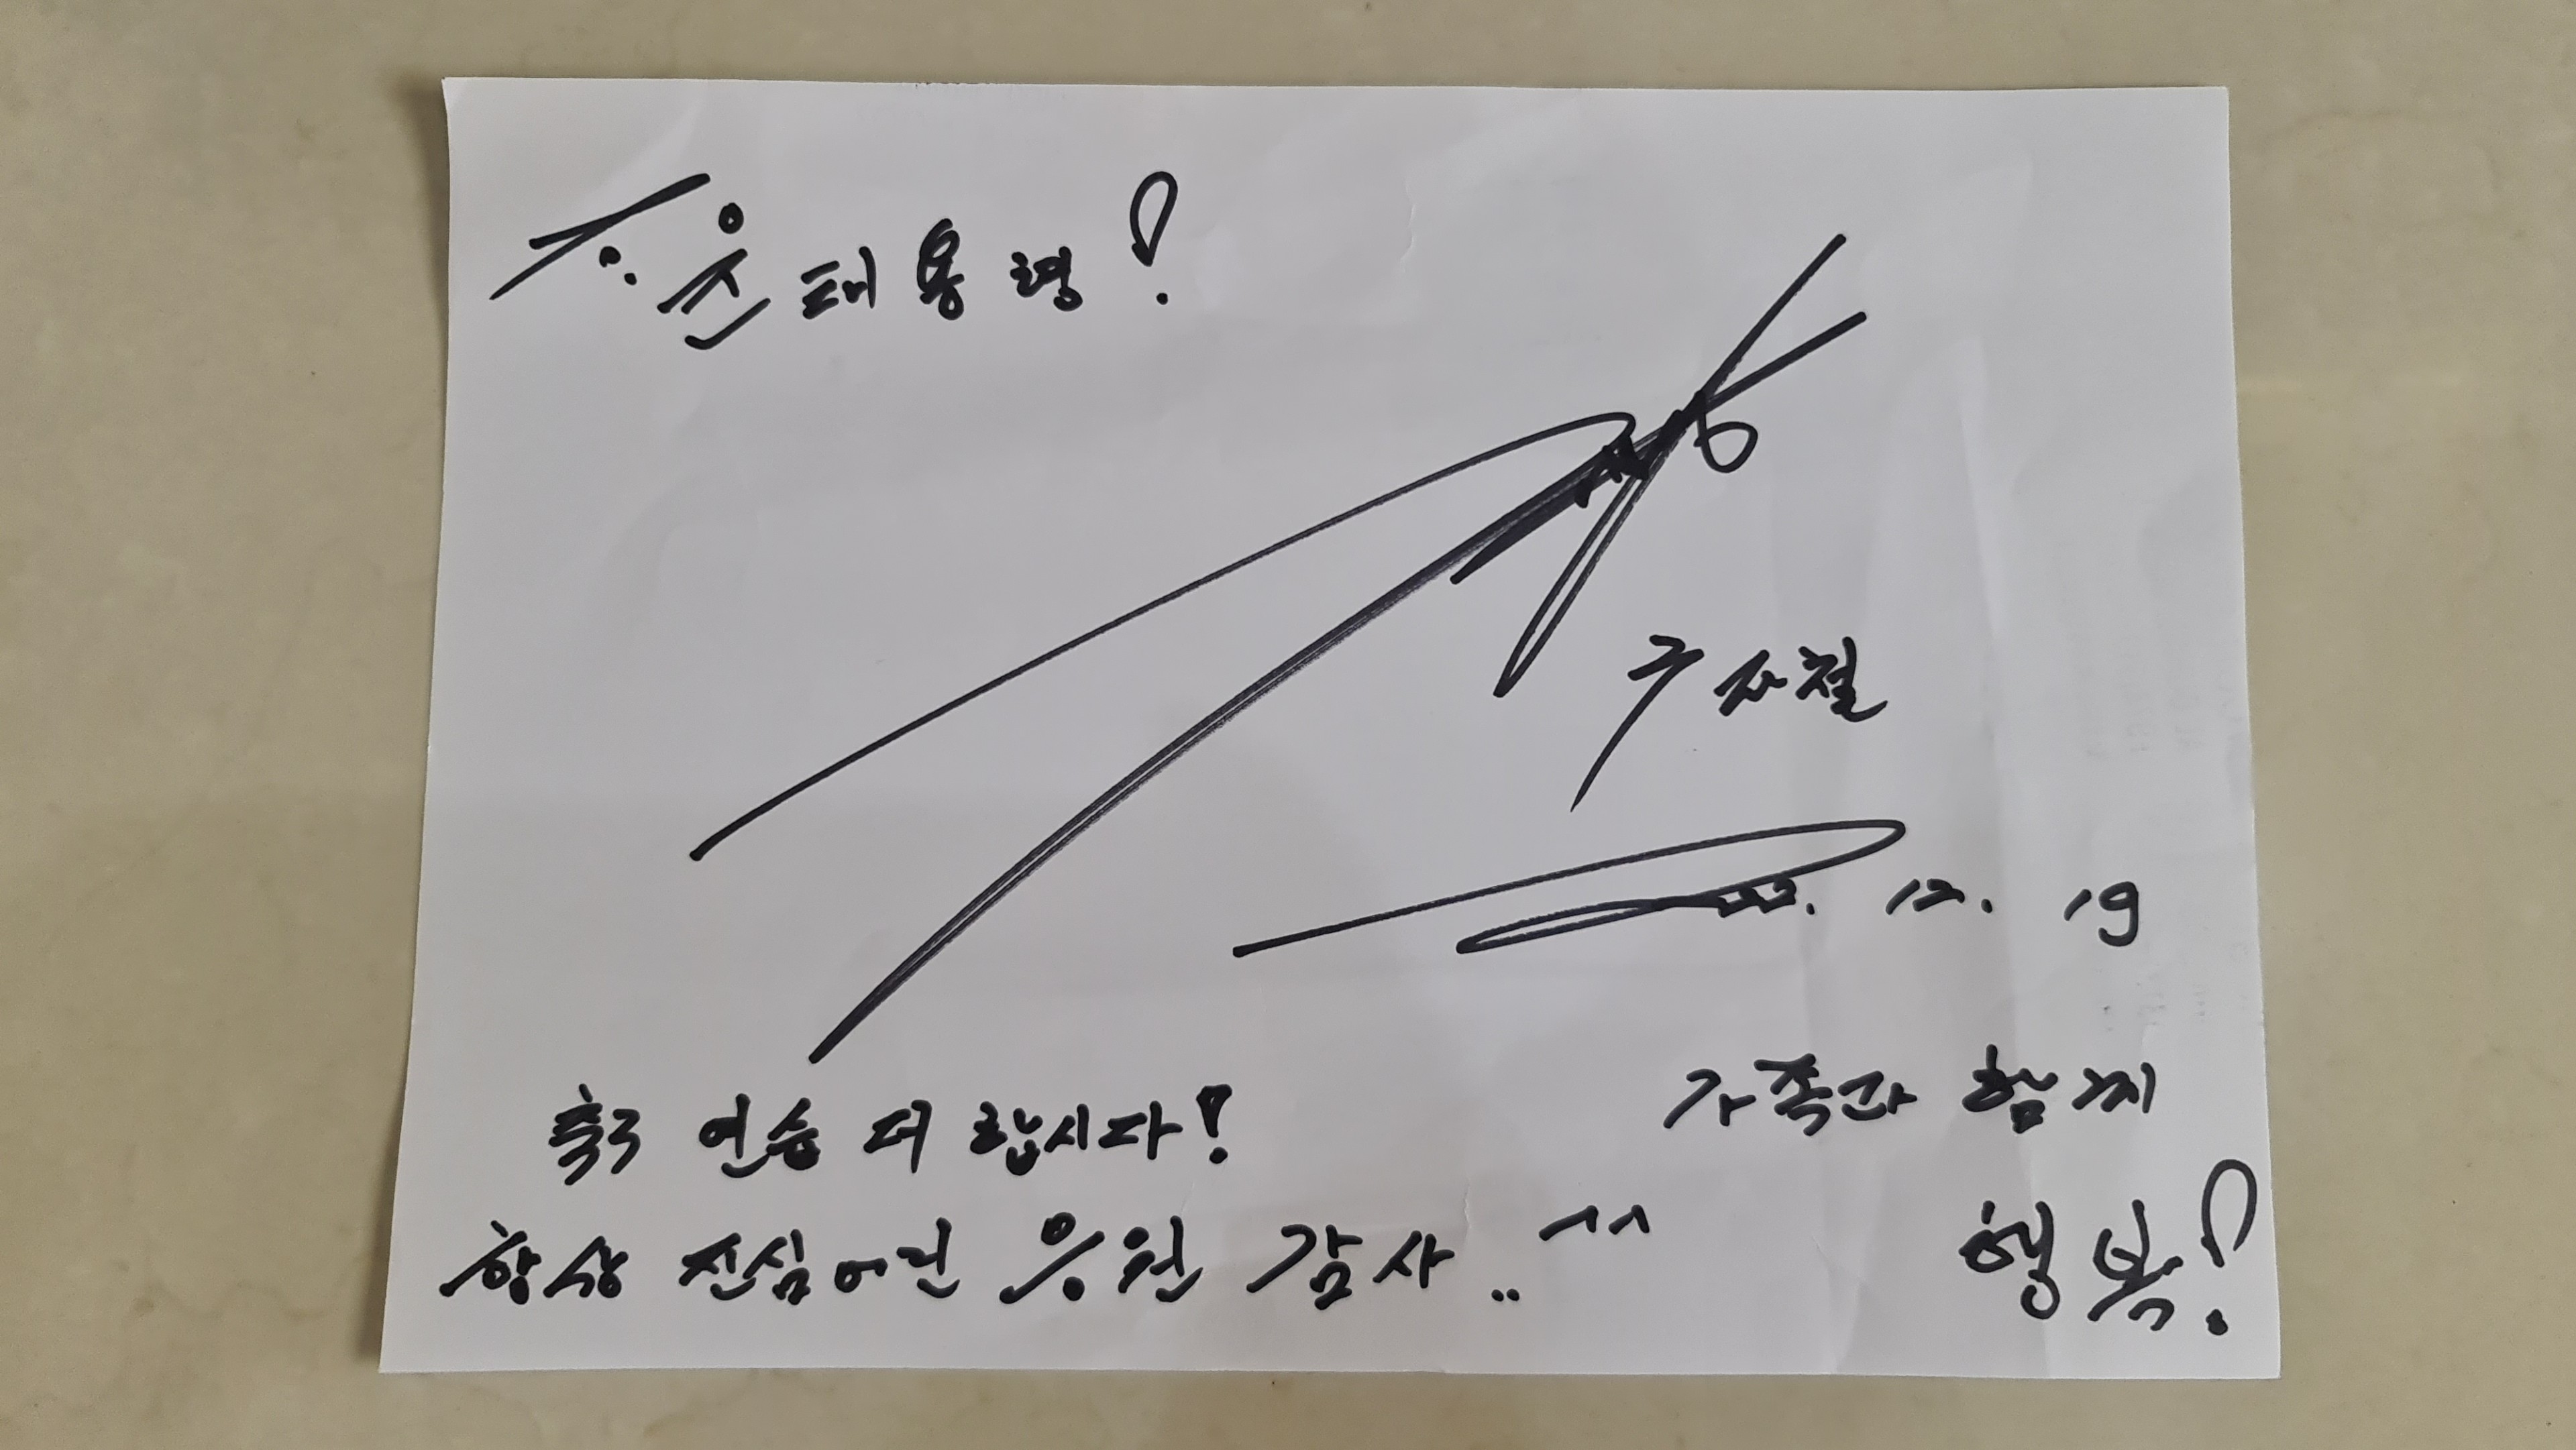 To. 윤태용 형!
구자철
22. 12. 19
축구 연습 더 합시다!
항상 진심어린 응원 감사..^^
가족과 함께
행복!